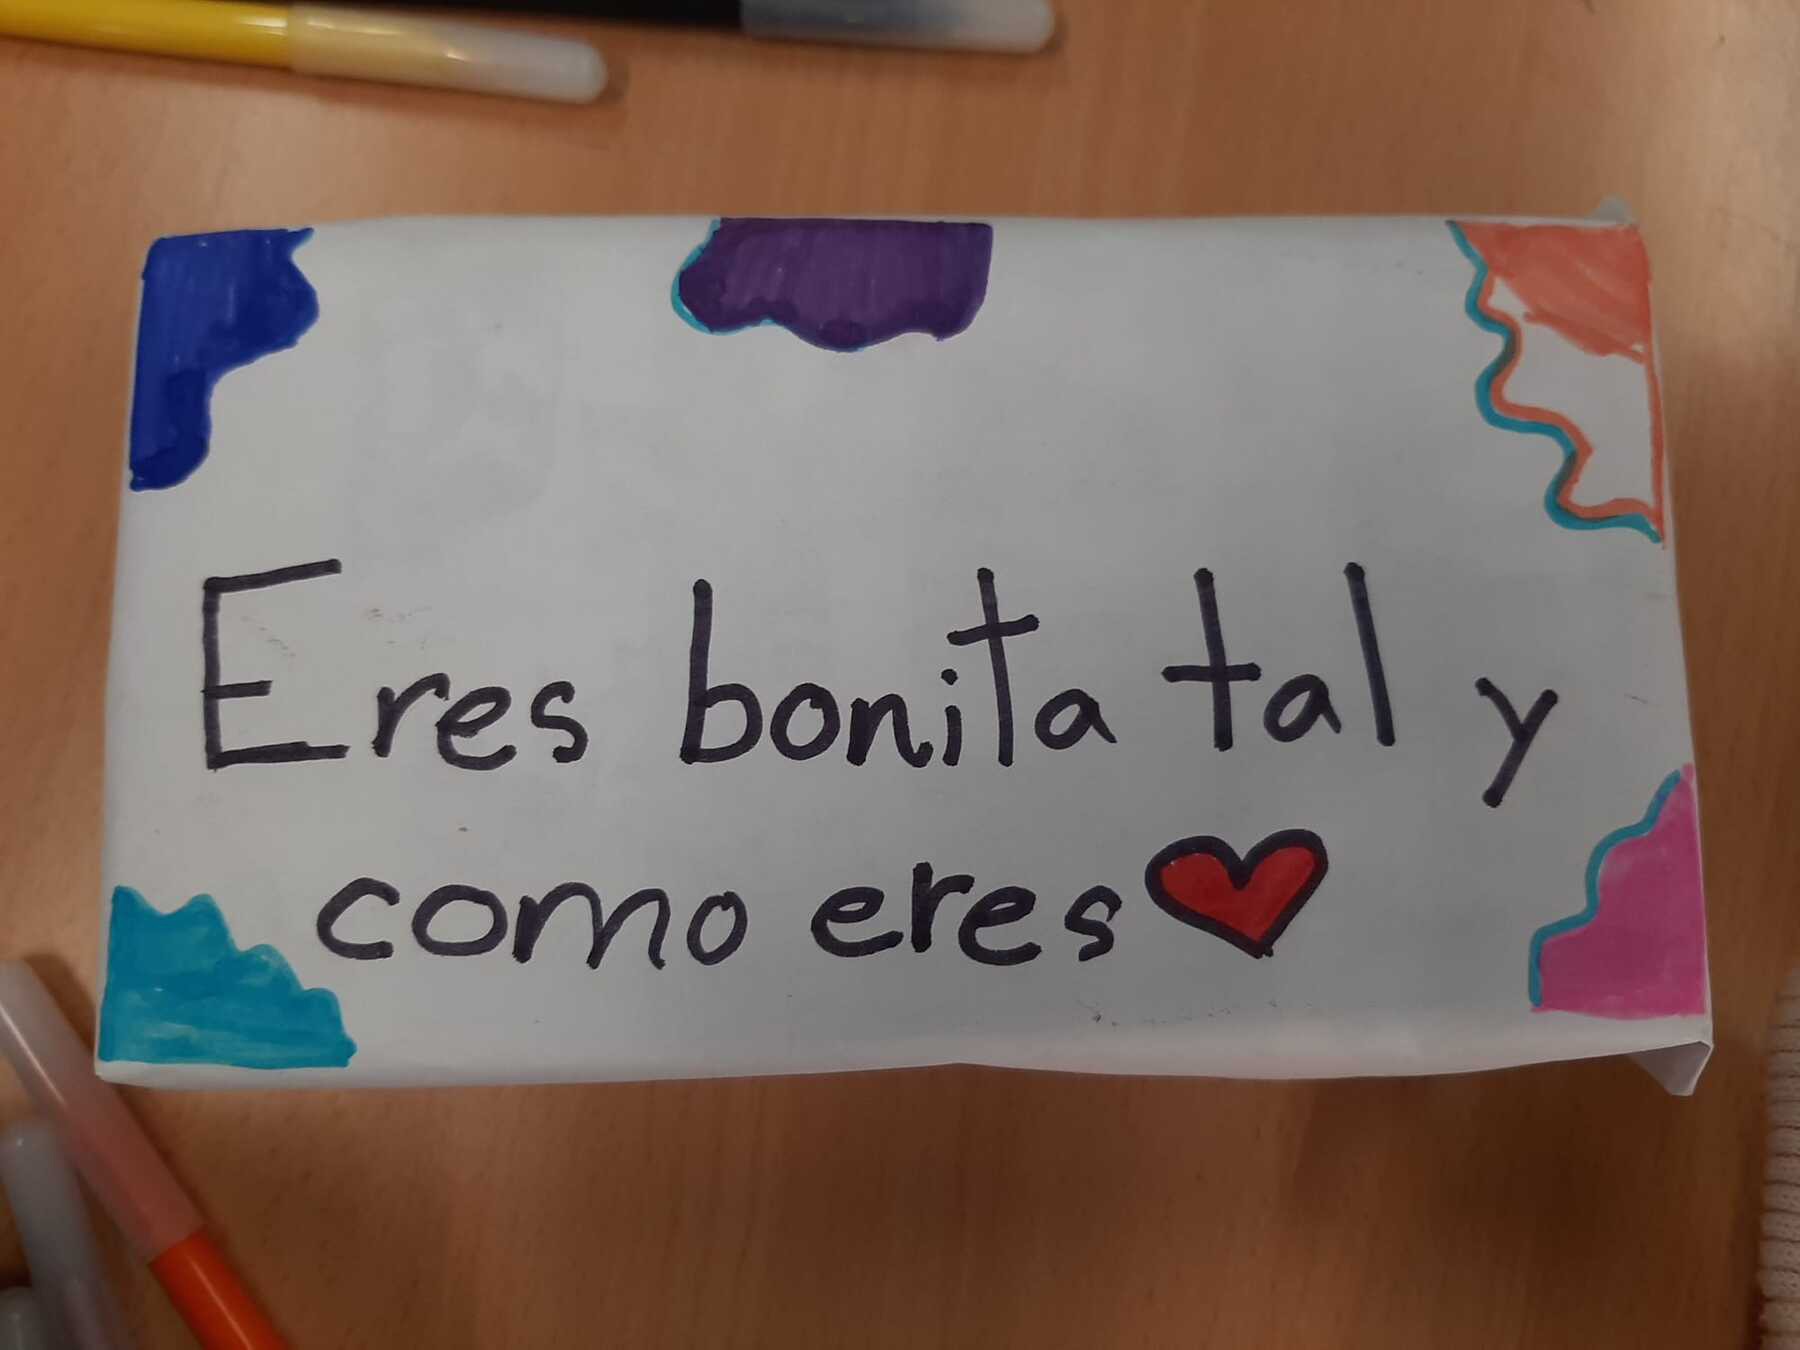 Eres bonita tal y
como eres